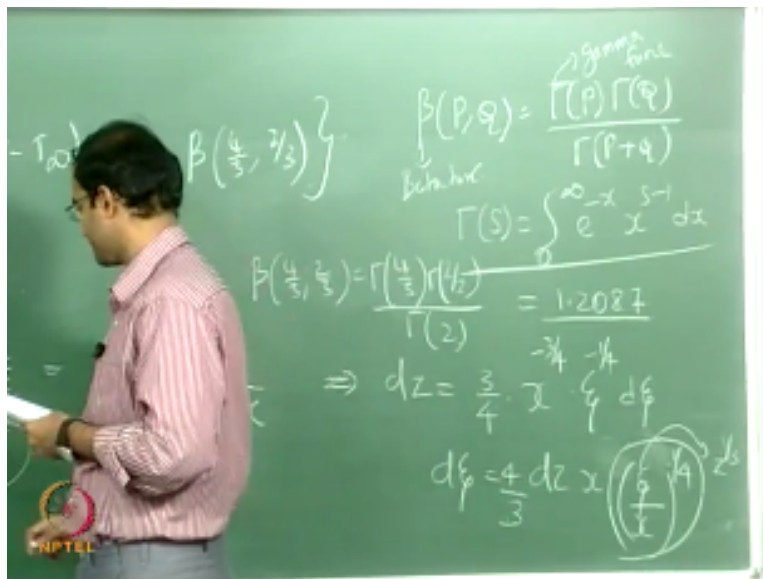 gamma
func
β(P,Q) = Γ(P) Γ(Q) / Γ(P+Q)
- T∞)
β(4/3, 2/3) }
Γ(S) = ∫₀^∞ e^-x x^S-1 dx
β(4/3, 2/3) = Γ(4/3) Γ(2/3) / Γ(2) = 1.2087
⇒ dz = 3/4 · x^-3/4 · ξ^-1/4 dξ
=
dξ = 4/3 dz x (ξ/x)^1/4 z^1/3
NPTEL